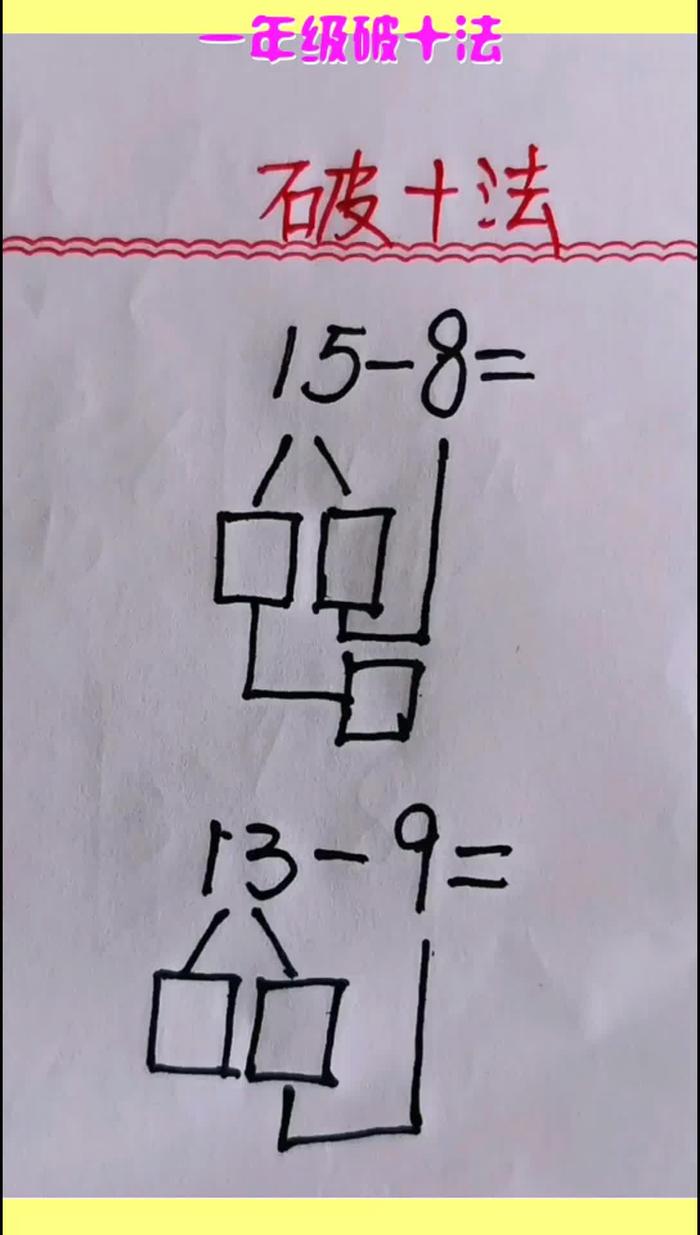 一年级破十法
破十法
15-8=
13-9=